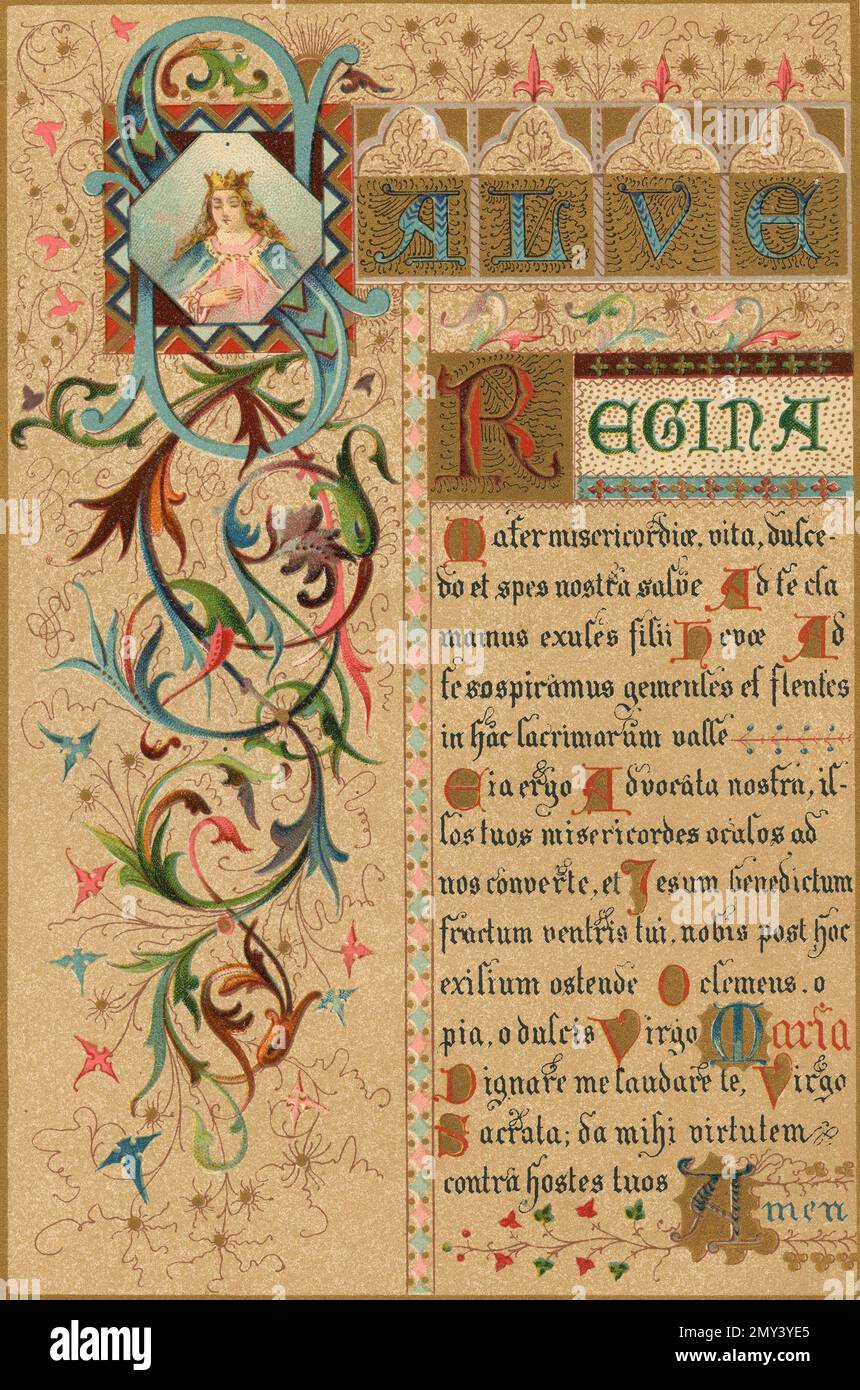 SALVE
REGINA
Mater misericordiæ, vita, dulce-
do et spes nostra salve Ad te cla
mamus exules filii Hevæ Ad
te sospiramus gementes et flentes
in hac lacrimarum valle
Eia ergo Advocata nostra, il-
los tuos misericordes oculos ad
nos converte, et Jesum benedictum
fructum ventris tui, nobis post hoc
exilium ostende O clemens. o
pia, o dulcis Virgo Maria
Dignare me laudare te, Virgo
Sacrata; da mihi virtutem
contra hostes tuos Amen
alamy
Image ID: 2MY3YE5
www.alamy.com